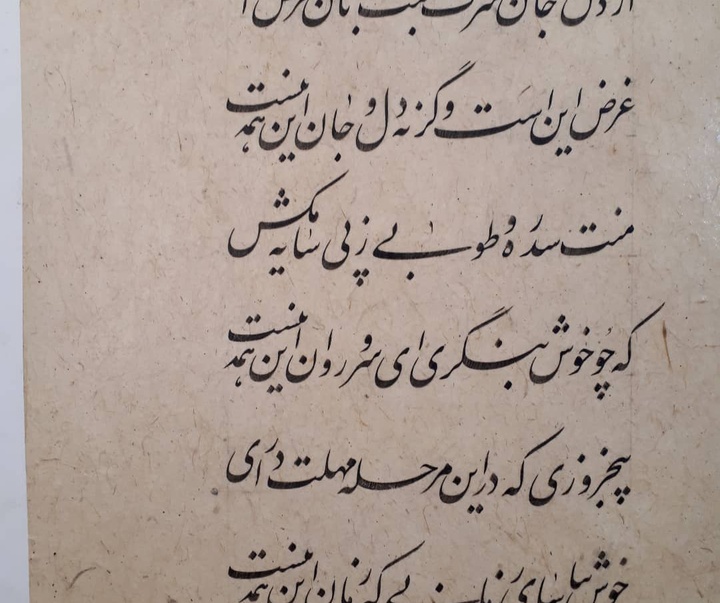 از دل جان شرف صحبت جانان غرض
غرض این است وگرنه دل و جان این همه نیست
منت سدره و طوبی ز پی سایه مکش
که چو خوش بنگری ای سرو روان این همه نیست
پنجروزی که در این مرحله مهلت داری
خوش بیاسای زمانی که زمان این همه نیست